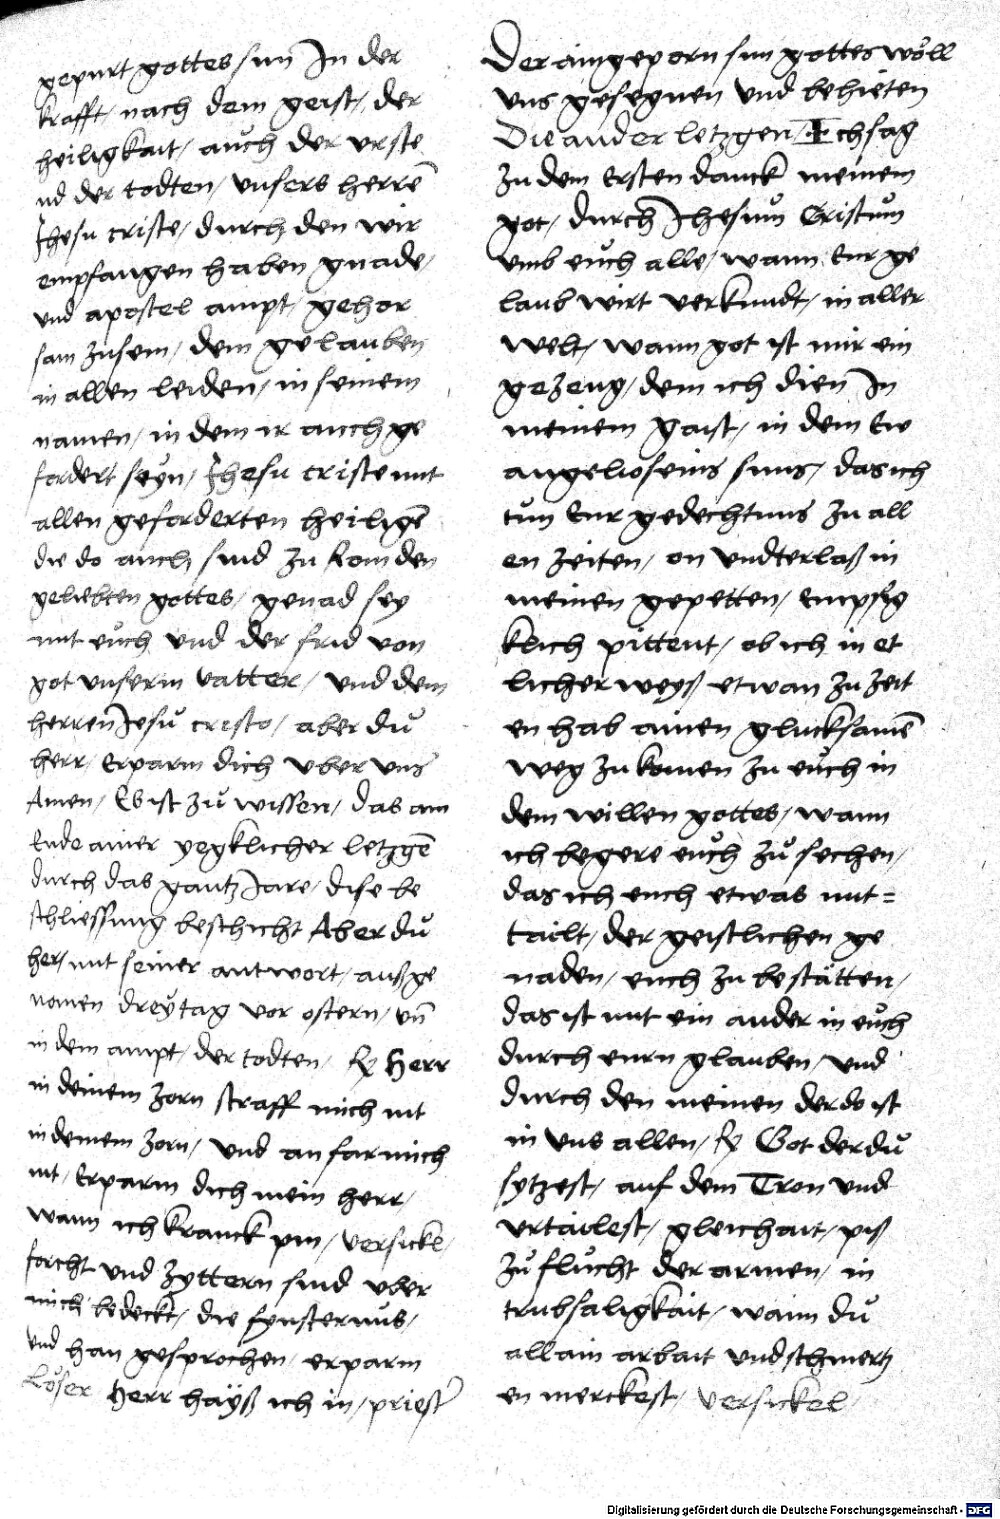 gepurt gottes sun In der
krafft / nach dem geist / der
heiligkait / auch der urste
nd der todten / unsers herrē
Jhesu criste / durch den wir
empfangen haben gnade /
und apostel ampt / gehor
sam zusem / dem gelauben
in allen leiden / in seinem
namen / in dem ir auch ge
fordert seyn / Jhesu criste mit
allen geforderten heiligē
die do auch sind zu Rom den
geliebten gottes / genad sey
mit eůch und der frid von
got unserm vatter / und dem
herren Jesů cristo / aber dů
herr / Erparm dich uber uns
Amen / Es ist zů wissen / das am
Ende ainer yegklicher letzgē
durch das gantz Jare / dise be
schliessung beschicht Aber dů
her / mit seiner antwort / außge
nomen dreytag vor ostern / uñ
in dem ampt / der todten / R Herr
in deinem zorn straff mich nit
in deinem zorn / und anfar mich
nit / Erparm dich mein herr /
wann ich kranck pin / versickl /
forcht und zyttern sind uber
mich bedeckt / die fynsternůs /
und han gesprochen / erparm
Löser Herr hayß ich in / priest
Der aingeporn sun gottes wöll
uns gesegnen und behieten
Die ander letzgen / Ich sag
zu dem Ersten danck meinem
got / durch Jhesum Cristum
umb eůch alle / wann Eur ge
laub wirt verkundt / in aller
welt / wann got ist mir ein
gezeug / dem ich dien In
meinem gaist / in dem Ew
angelio seins suns / das ich
tun Eur gedechtnus zu all
en zeiten / on undterlaß in
meinen gepetten / Empssig
klich pittent / ob ich in et
licher weyß etwan zu zeit
en hab ainen glucksamē
weg zu komen zu eůch in
dem willen gottes / wann
ich begere eůch zů sechen /
das ich euch etwas mit=
tailt / der geistlichen ge
naden / euch zu bestätten /
das ist mit ein ander in eůch
durch eurn glauben / und
durch den meinen der do ist
in uns allen / R Got der dů
sytzest / auf dem Tron und
urtailest / gleichait / piß
zů flucht der armen / in
trubsaligkait / wann dů
allain arbait und schmertz
en merckest / versickel /
Digitalisierung gefördert durch die Deutsche Forschungsgemeinschaft - DFG